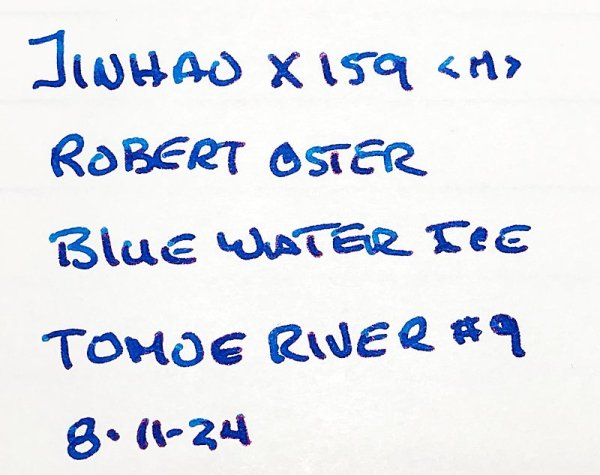 JINHAO X159 <M>
ROBERT OSTER
BluE WATER IcE
TOMOE RIVER #9
8·11-24